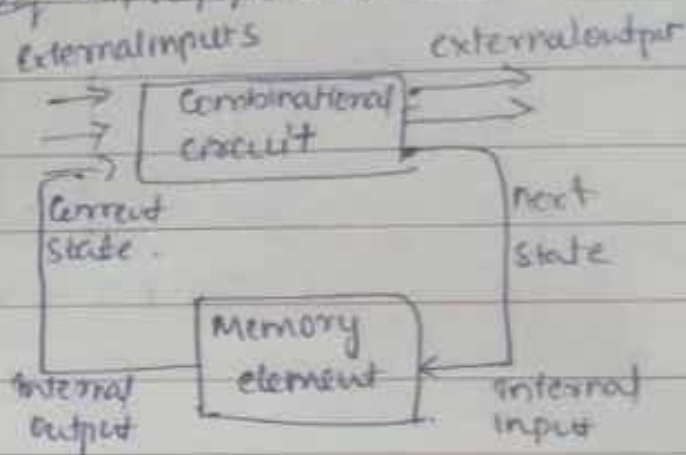 externalinputs
externaloutput
Combinational
circuit
Current
state.
next
state
Memory
element
internal
output
internal
input